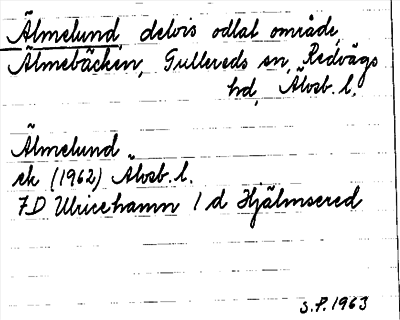 Älmelund delvis odlat område,
Älmebäcken, Gullereds sn, Redvägs
hd, Älvsb. l.
Älmelund
ek (1962) Älvsb. l.
7D Ulricehamn 1 d Hjälmsered
S.P. 1963